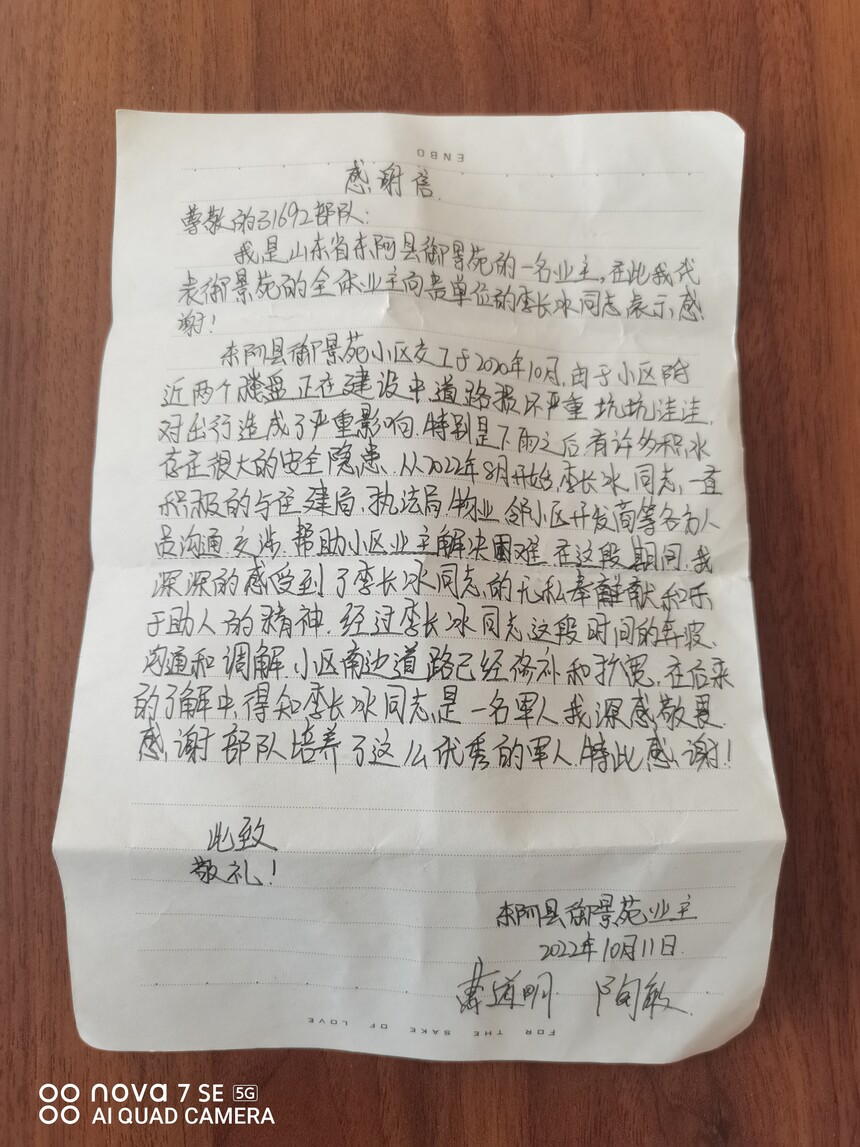 ENBO
感谢信
尊敬的31692部队:
我是山东省东阿县御景苑的一名业主,在此我代
表御景苑的全体业主向贵单位的李长冰同志表示感
谢!
东阿县御景苑小区交工于2020年10月,由于小区附
近两个楼盘正在建设中,道路损坏严重,坑坑洼洼,
对出行造成了严重影响,特别是下雨之后,有许多积水
存在很大的安全隐患,从2022年8月开始,李长冰同志,一直
积极的与住建局,执法局,物业,邻小区开发商等各方人
员沟通交涉,帮助小区业主解决困难,在这段期间,我
深深的感受到了李长冰同志的无私奉献和乐
于助人的精神.经过李长冰同志这段时间的奔波、
沟通和调解,小区南边道路已经修补和扩宽,在后来
的了解中,得知李长冰同志是一名军人,我深感敬畏,
感谢部队培养了这么优秀的军人,特此感谢!
此致
敬礼!
东阿县御景苑业主
2022年10月11日
道明 陶敏
FOR THE SAKE OF LOVE
nova 7 SE 5G
AI QUAD CAMERA